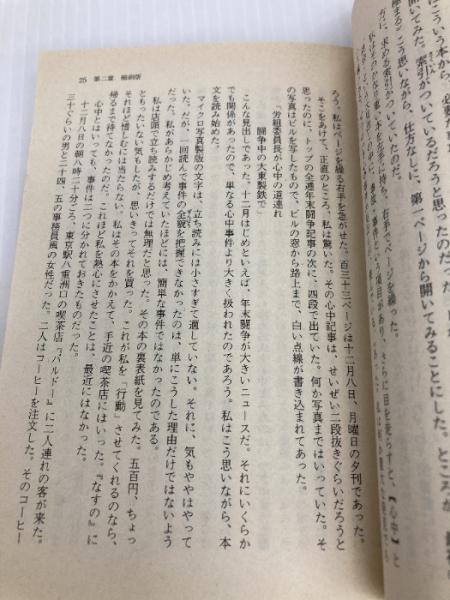 こういう本から、必要な
開いてみた。索引がついているだろうと思ったのだった。
極まる)こう思いながら、仕方なしに、第一ページから開いてみることにした。ところが
だに、求める索引が
私はそのかなり重い本を左手にささえ、右手でページを繰った。
25 第二章 縮刷版
ろう。私はページを繰る右手を急がせた。百三十三ページは十二月八日、月曜日の夕刊であった。
そこをあけて、正直のところ、私は驚いた。その心中記事は、せいぜい二段抜きぐらいだろうと
思ったのに、トップの全逓年末闘争記事の次に、四段で出ていた。何か写真まではいっていた。そ
の写真はビルを写したもので、ビルの窓から路上まで、白い点線が書き込まれてあった。
闘争中の大東製鉄で
「労組委員長が心中の道連れ
こんな見出しであった。十二月はじめといえば、年末闘争が大きいニュースだ。それにいくらか
でも関係があったので、単なる心中事件より大きく扱われたのであろう。私はこう思いながら、本
文を読み始めた。
マイクロ写真製版の文字は、立ち読みには小さすぎて適していない。それに、気もややはやって
いた。だが、一回読んで事件の全貌を把握できなかったのは、単にこうした理由だけではないよう
だった。私があらかじめ考えていたほどには、簡単な事件ではなかったのである。
私は店頭で立ち読みするだけでは無理だと思った。その本の裏表紙を見てみた。五百円、ちょっ
ともったいない気もしたが、思いきってそれを買った。これが私を「行動」させてくれるのなら、
それほど惜しむには当たらない。私はその本をかかえて、手近の喫茶店にはいった。『なすの』に
帰るまで待てなかったのだ。これほど私を熱心にさせたことは、最近にはなかった。
心中とはいっても、事件は二つに分かれておきたものだった。
十二月八日の朝八時二十分ごろ、東京駅八重洲口の喫茶店『バルドー』に二人連れの客が来た。
三十ぐらいの男と二十四、五の事務員風の女性だった。二人はコーヒーを注文した。そのコーヒー